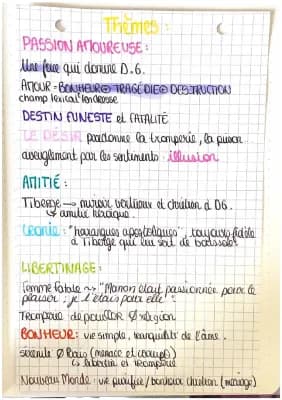 Thèmes :
PASSION AMOUREUSE :
Une force qui domine D.G.
AMOUR = BONHEUR ⊕ TRAGÉDIE ⊕ DESTRUCTION
champ lexical tendresse
DESTIN FUNESTE et FATALITÉ
LE DÉSIR : la tromperie, la
aveuglement par les sentiments : illusion
AMITIÉ :
Tiberge → miroir vertueux et chrétien à DG.
↳ amitié héroïque.
Ironie : "harangues apostoliques", toujours fidèle
à Tiberge qui lui sert de
LIBERTINAGE :
femme fatale ~> "Manon était passionnée pour le
plaisir ; je l'étais pour elle".
religion
BONHEUR : vie simple, tranquillité de l'âme.
sérénité Ø Paris (menace et
↳ libertin et
Nouveau Monde : vie purifiée / bonheur chrétien (mariage)